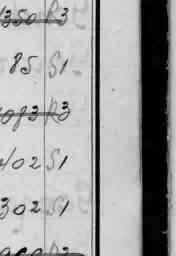 1350 R3
85 S1
1083 R3
402 S1
302 S1